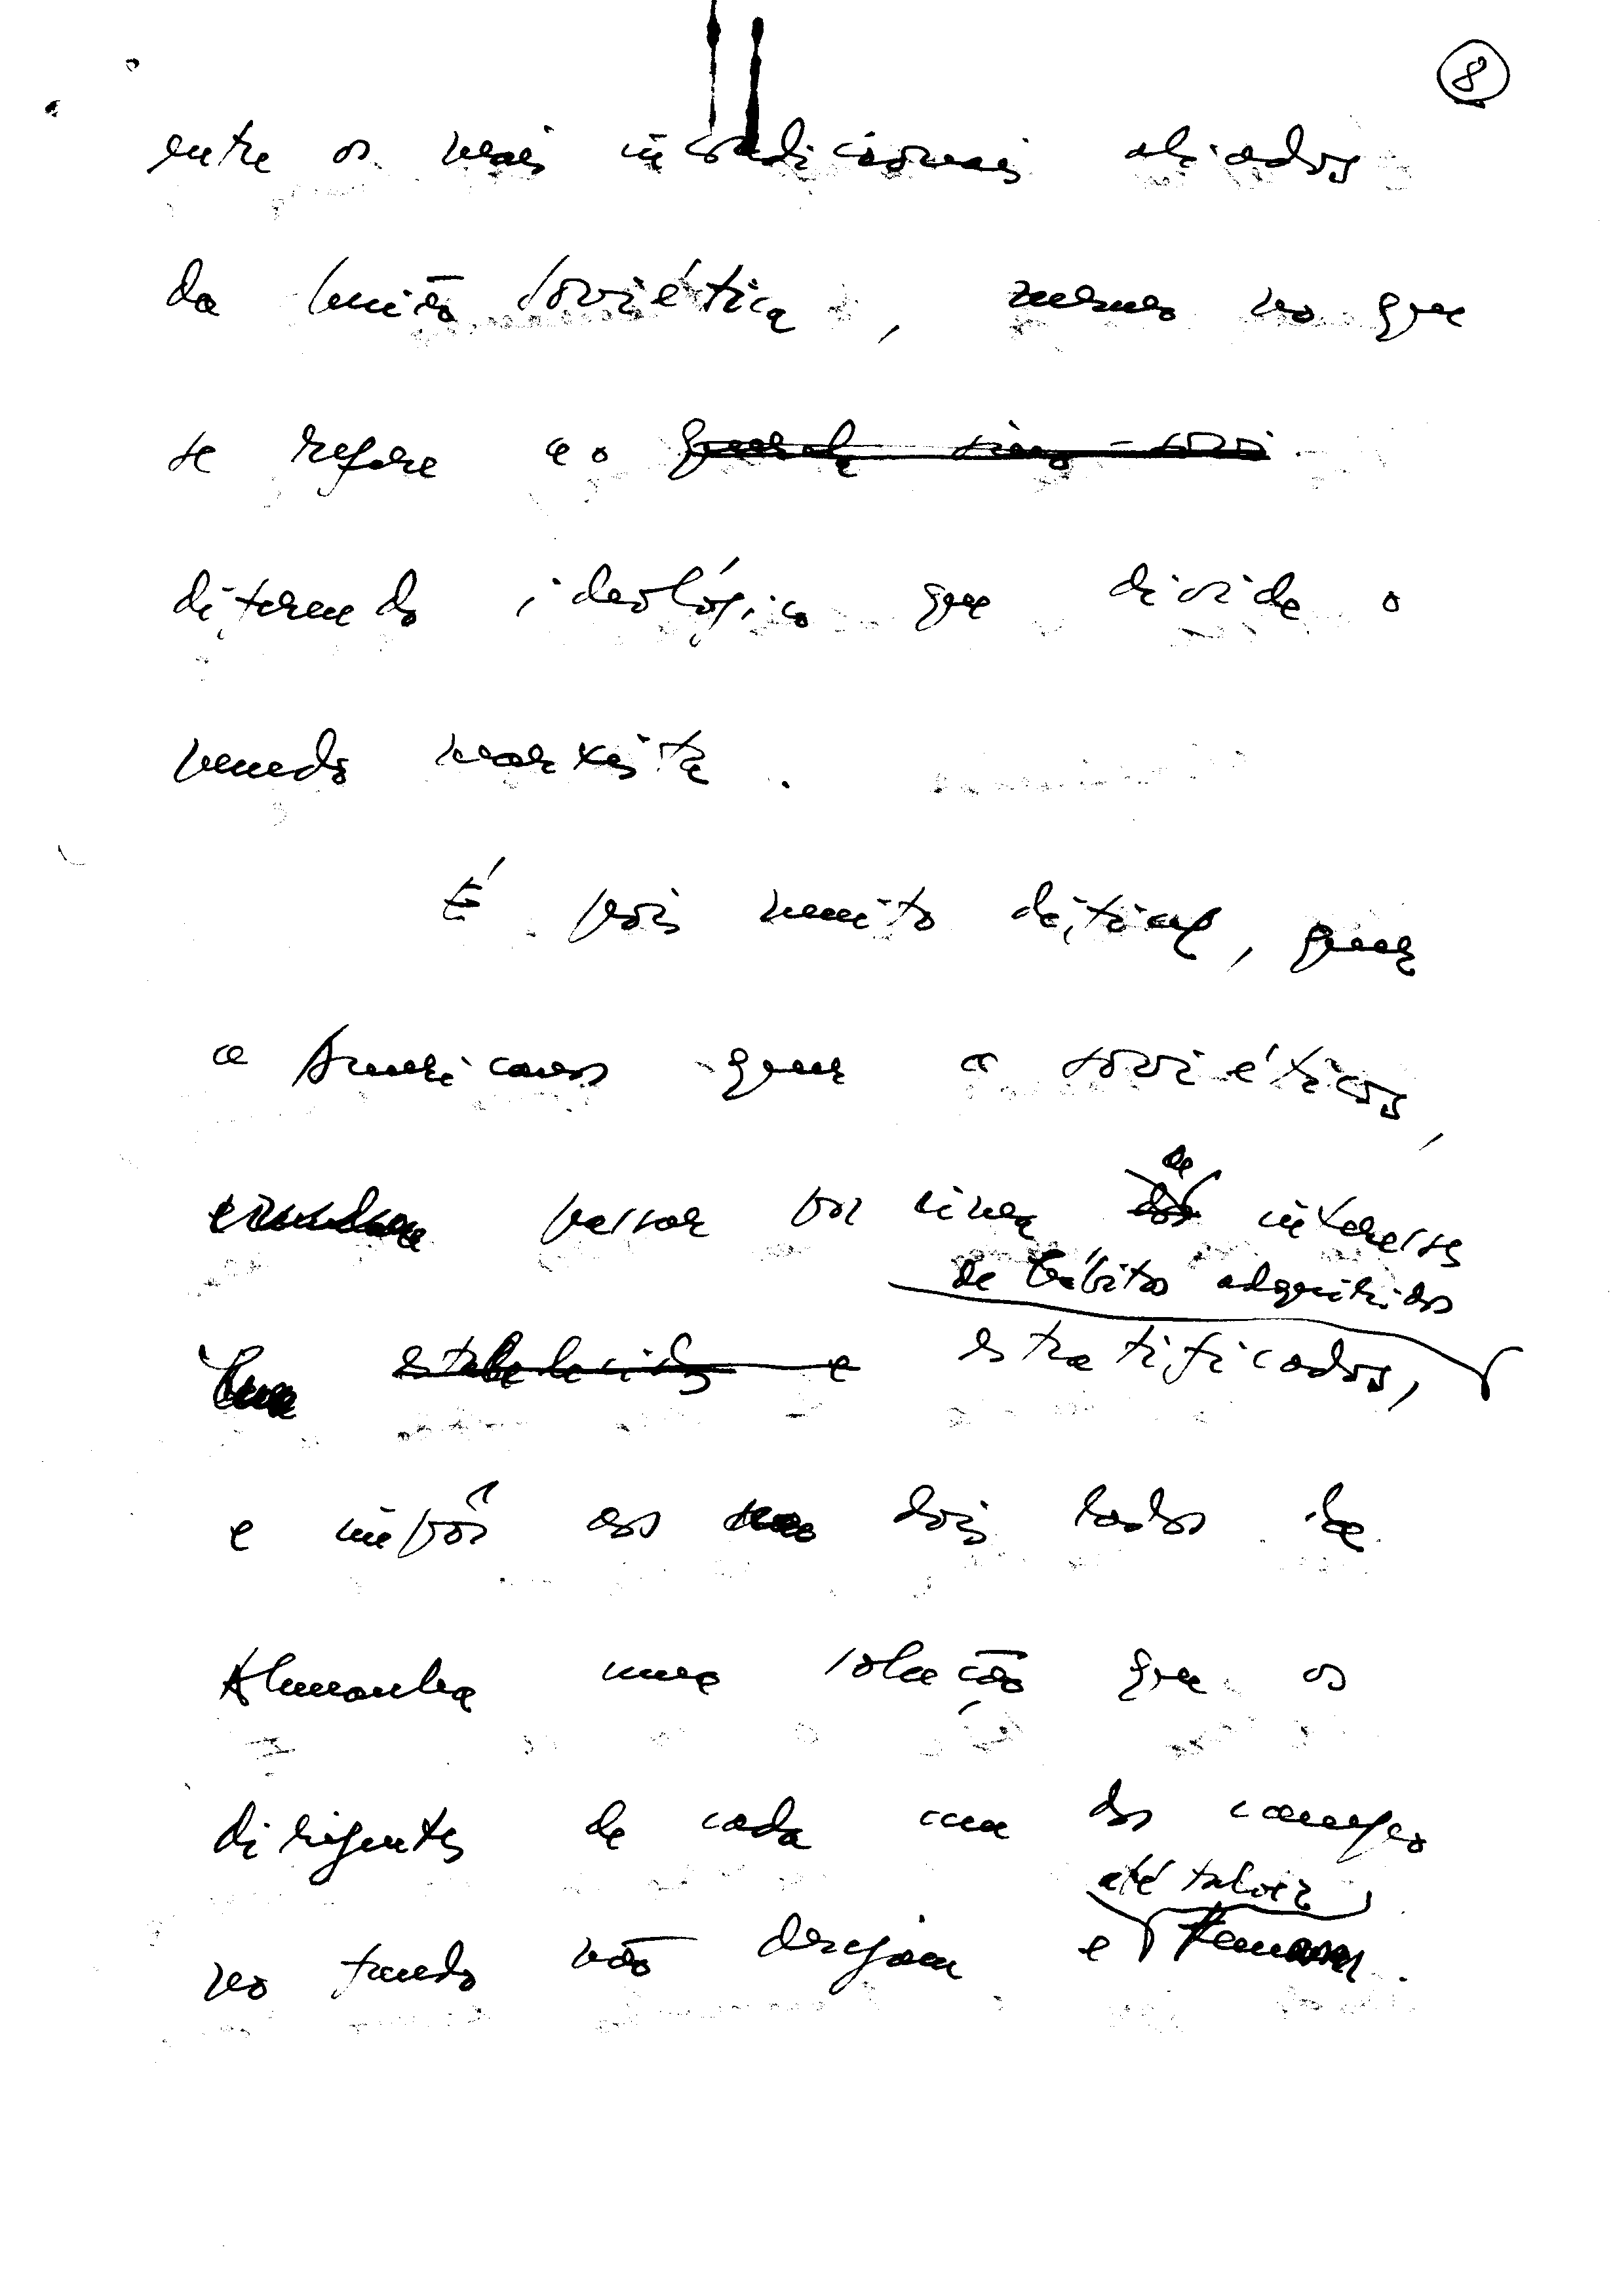 8
entre os mais incondicionais aliados
da União Soviética, mesmo no que
se refere ao querela sino-sovi
diferendo ideológico que divide o
mundo marxista.
É pois muito difícil, quer
a Americanos quer a soviéticos,
passar por cima de interesses
de hábitos adquiridos
estabelecidos e estratificados,
e impôr aos dois lados da
Alemanha uma solução que os
dirigentes de cada um dos campos
até talvez
no fundo não desejam e temam.